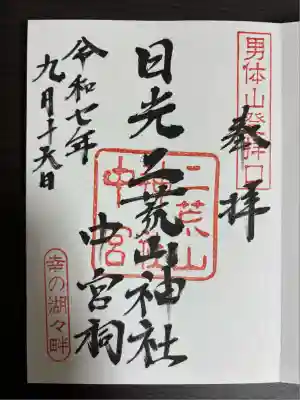 男体山登拝口
奉拝
日光二荒山神社
中宮祠
二荒山
中宮
令和七年
九月十六日
幸の湖々畔